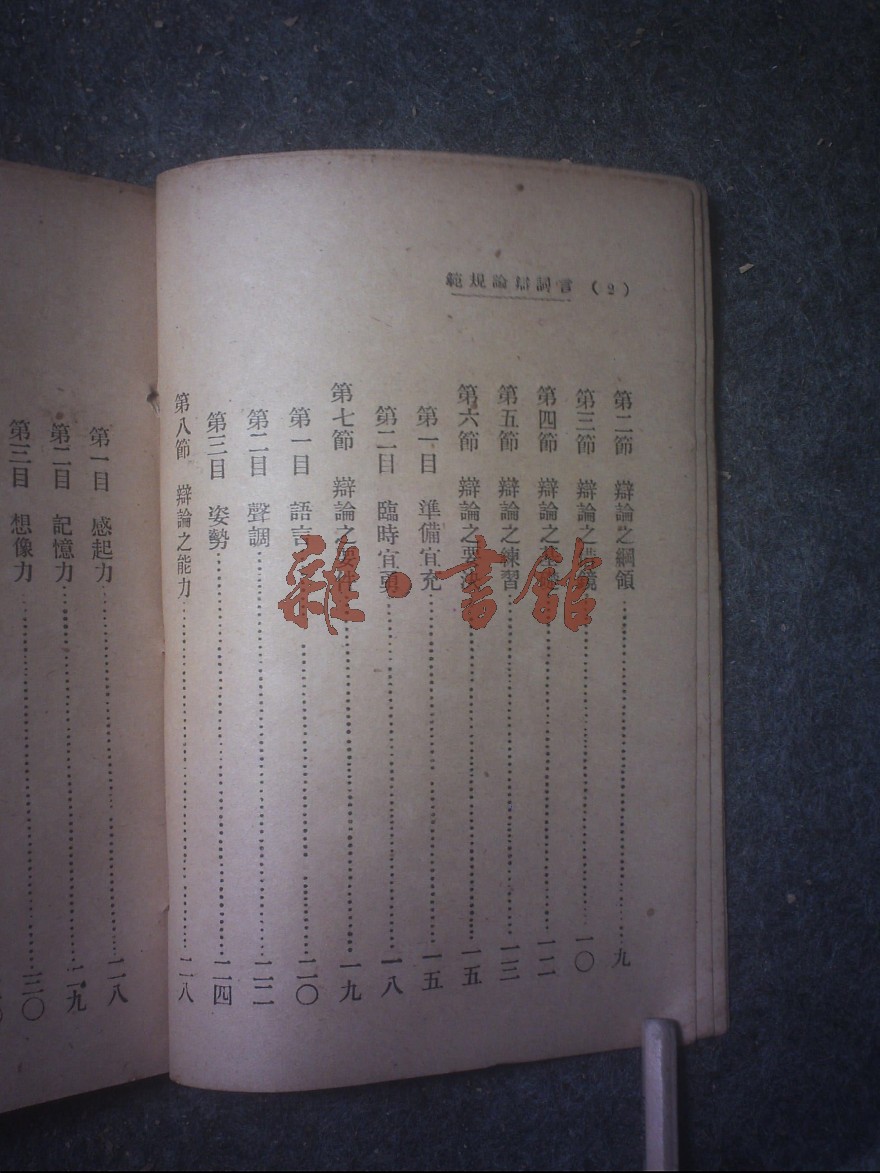 (2) 言詞辯論規範
第二節 辯論之綱領……九
第三節 辯論之……一〇
第四節 辯論之……一二
第五節 辯論之練習……一三
第六節 辯論之要……一五
第一目 準備宜充……一五
第二目 臨時宜勇……一八
第七節 辯論之要件……一九
第一目 語言……二〇
第二目 聲調……二二
第三目 姿勢……二四
第八節 辯論之能力……二八
第一目 感起力……二八
第二目 記憶力……二九
第三目 想像力……三〇
雜·書館